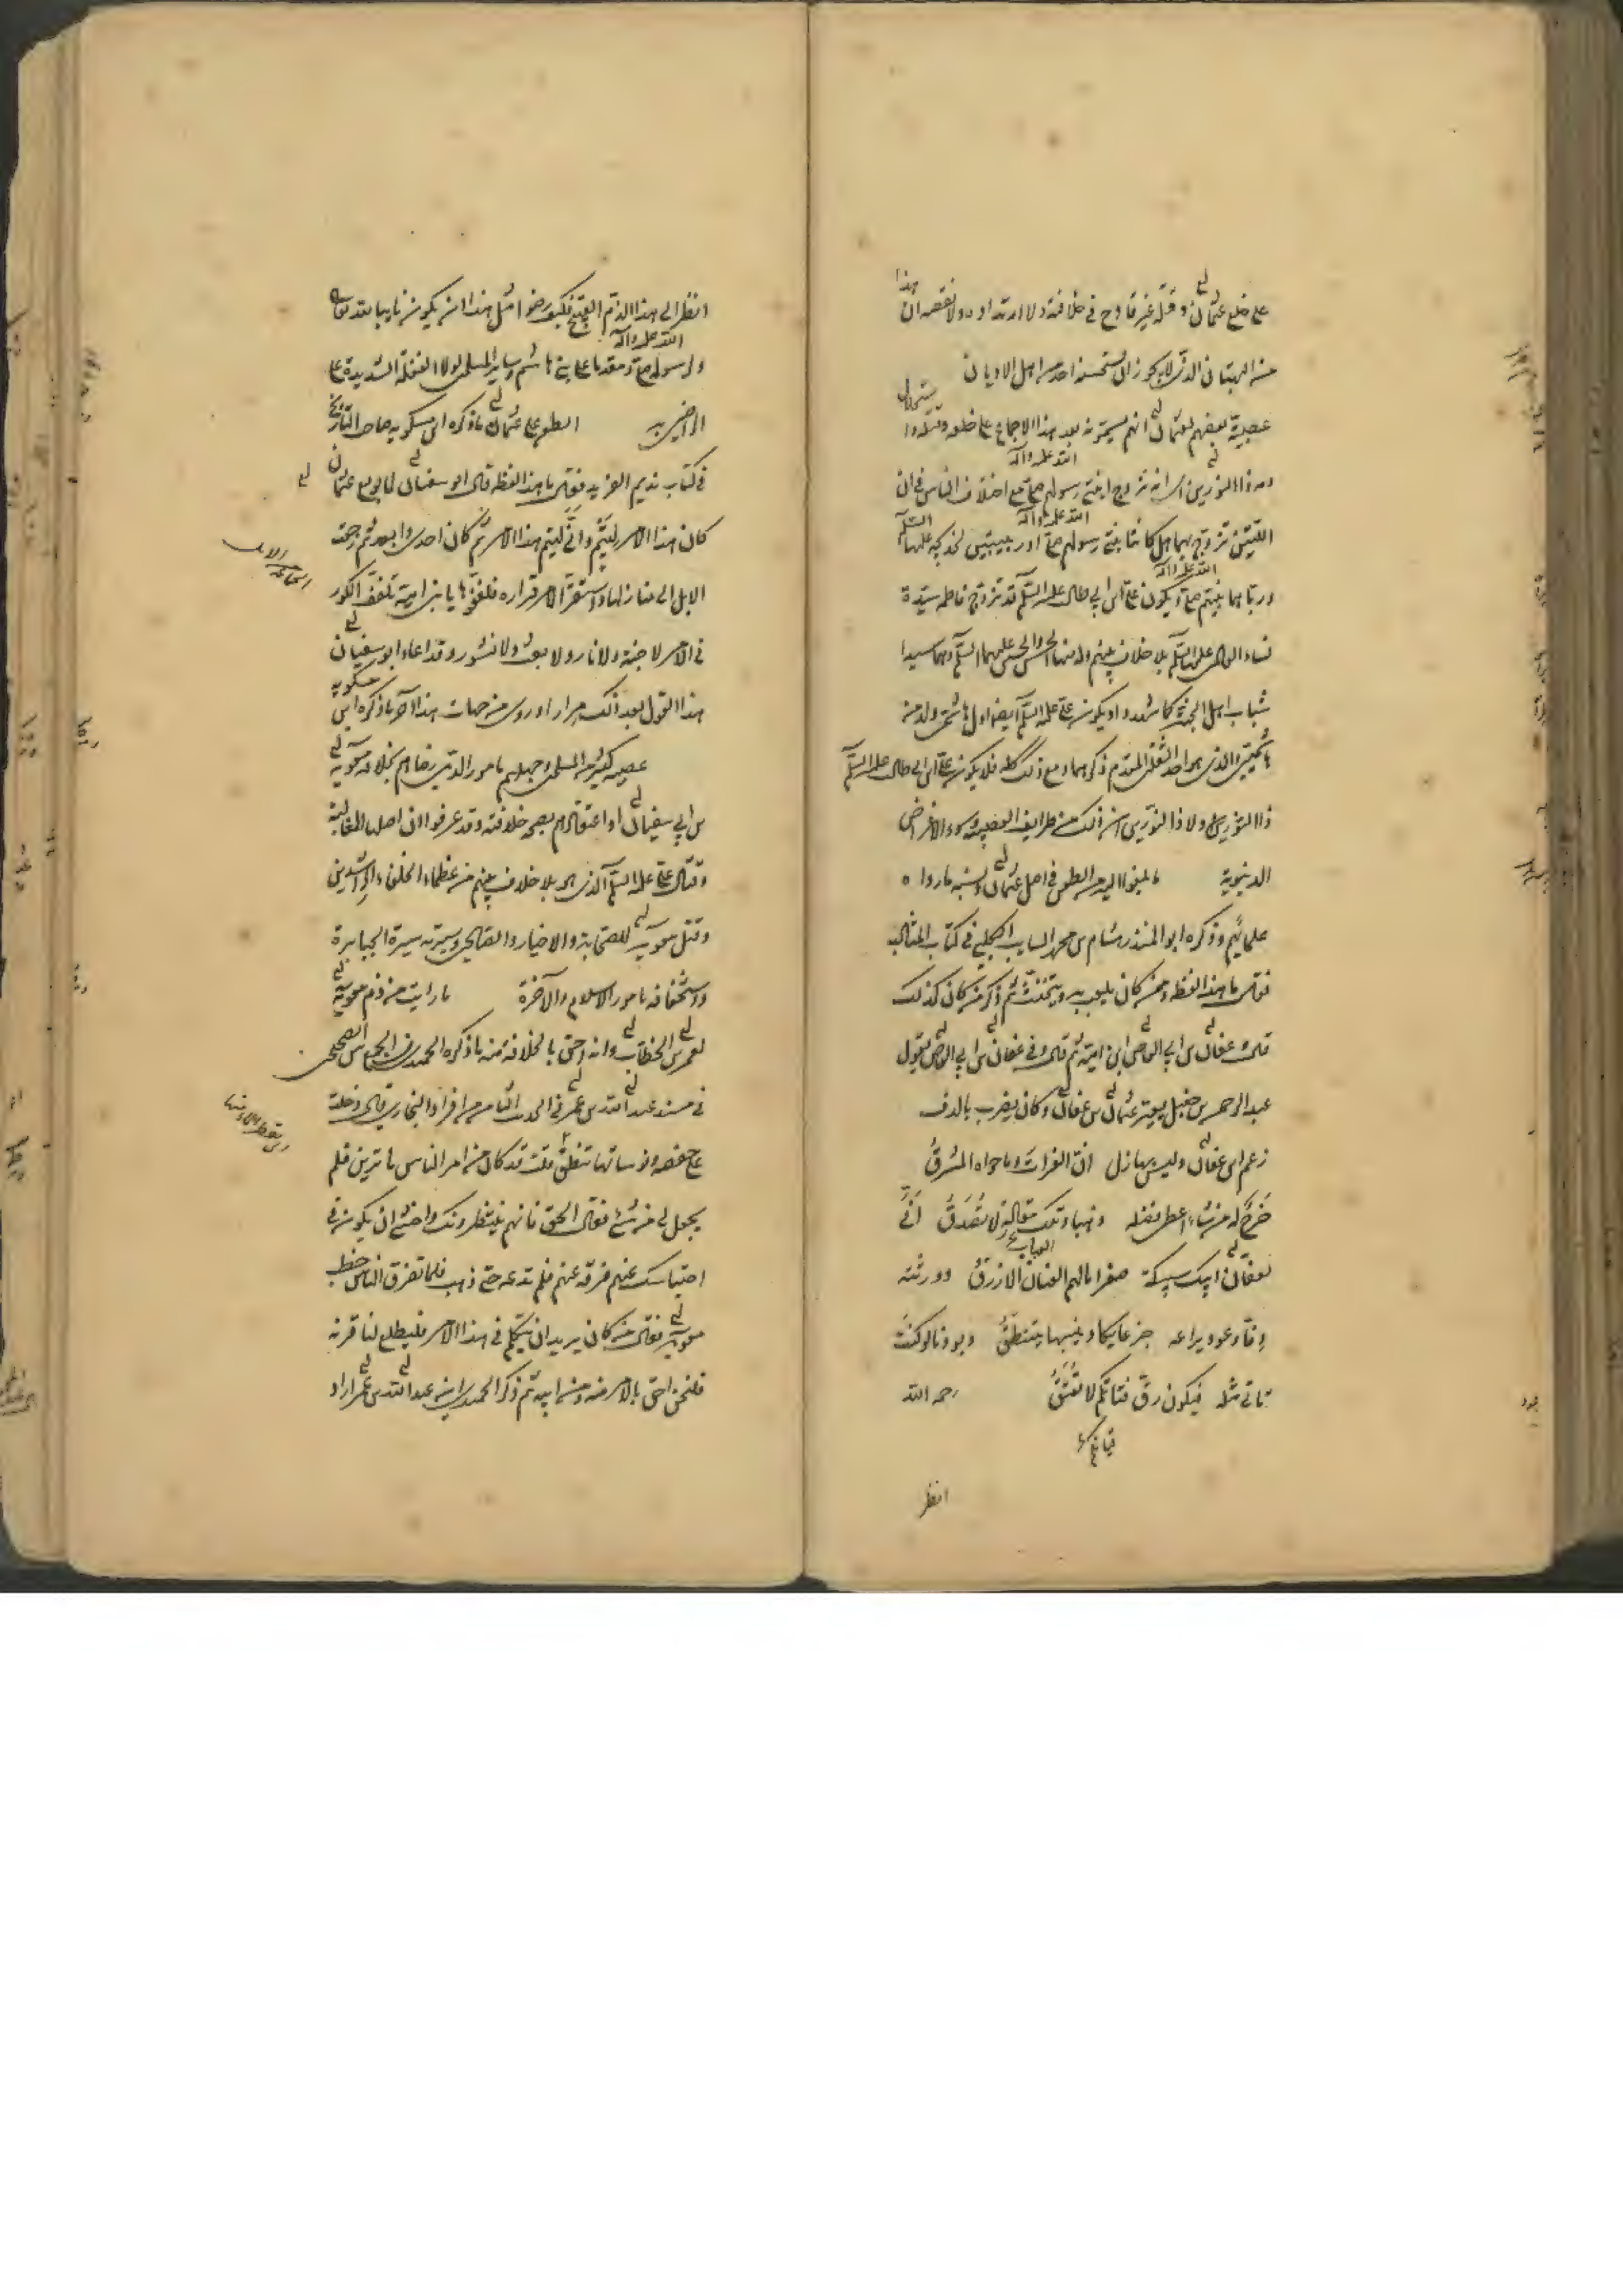 على خلع عثمان وقتله غير قادح في خلافته ولا ارتداده ولا نقصه ان هذا
من البهتان الذي لا يجوز ان يستحسنه احد من اهل الاديان
عصبية بعضهم لعثمان انهم يسمونه بعد هذا الاجماع على خلعه وقتله
ذا النورين اي انه تزوج ابنتي رسولهم صلى الله عليه واله مع اختلاف الناس في ان
اللتين تزوج بهما هل كانتا ابنتي رسولهم صلى الله عليه واله او ربيبتين لخديجة عليها السلام
ورباهما نبيهم صلى الله عليه واله ويكون علي بن ابي طالب عليه السلام قد تزوج فاطمة سيدة
نساء العالمين عليها السلام بلا خلاف بينهم ولد منها الحسن والحسين عليهما السلام وهما سيدا
شباب اهل الجنة كما شهدوا ويكون علي عليه السلام ايضا اول هاشمي ولد من
هاشميين والذي هو احد الثقلين المقدم ذكرهما ومع ذلك كله فلا يكون علي بن ابي طالب عليه السلام
ذا النورين ولا ذا النور ان ذلك من طرايف العصبية وسوء الاغراض
الدنيوية ما بلغوا اليه من الطعن في اصل عثمان ونسبه ما رواه
علمائهم وذكره ابو المنذر هشام بن محمد السايب الكلبي في كتاب المثالب
فقال ما هذا لفظه وممن كان يلعب به ويتخنث ثم ذكر من كان كذلك
قال وعفان بن ابي العاص ابن امية ثم قال وفي عفان بن ابي العاص يقول
عبد الرحمن بن حنبل يعير عثمان بن عفان وكان يضرب بالدف
زعم ابن عفان وليس بهازل ان الفرات وما حواه المشرق
خرج له من شاء اعطى فضله ذهبا وتلك مقالة لا تصدق انى
لعفان ابيك سبيكة صفرا الازرق وورثته
دفا وعودا يراعه
فيكون رق فتاتكم لا تعتق رحمه الله
انظر
انظر الى هذا الذم القبيح فكيف رضوا مثل هذا ان يكون نايبا لله تعالى
ولرسولهم صلى الله عليه واله ومقدما على بني هاشم وساير المسلمين لولا الغفلة الشديدة على
الراضين به الطعن على عثمان ما ذكره ابن مسكويه صاحب التاريخ
في كتاب نديم الفريد فقال ما هذا لفظه قال ابو سفيان لما بويع عثمان
كان هذا الامر لتيم وانى لتيم هذا الامر ثم كان لعدي وابعد ثم رجعت
الابل الى منازلها واستقر الامر قراره فتلقفوها يا بني امية تلقف الكرة
في الامر لا جنة ولا نار ولا بعث ولا نشور وقد اعاد ابو سفيان
هذا القول بعد ذلك مرارا وروي من جهات هذا اخر ما ذكره ابن مسكويه
عصبية كثير من المسلمين وجهلهم بامور الدين رضاهم بخلافة معوية
بن ابي سفيان او اعتقادهم بصحة خلافته وقد عرفوا ان اصلها المغالبة
وقتال علي عليه السلام الذي هو بلا خلاف بينهم من عظماء الخلفاء الراشدين
وقتل معوية للصحابة والاخيار والصالحين وسيرته سيرة الجبابرة
واستخفافه بامور الاسلام والاخرة ما رايت من ذم معوية
لعمر بن الخطاب وانه احق بالخلافة منه ما ذكره الحميدي في الجمع بين الصحيحين
في مسند عبد الله بن عمر في الحديث الثامن من افراد البخاري قال دخلت
على حفصة ونوساتها تنطف قلت قد كان من امر الناس ما ترين فلم
يجعل لي من شئ فقالت الحق فانهم ينتظرونك واخشى ان يكون في
احتباسك عنهم فرقة عنهم فلم تدعه حتى ذهب فلما تفرق الناس خطب
معوية فقال من كان يريد ان يتكلم في هذا الامر فليطلع لنا قرنه
فلنحن احق بالامر منه ومن ابيه ثم ذكر الحميدي ان عبد الله بن عمر اراد